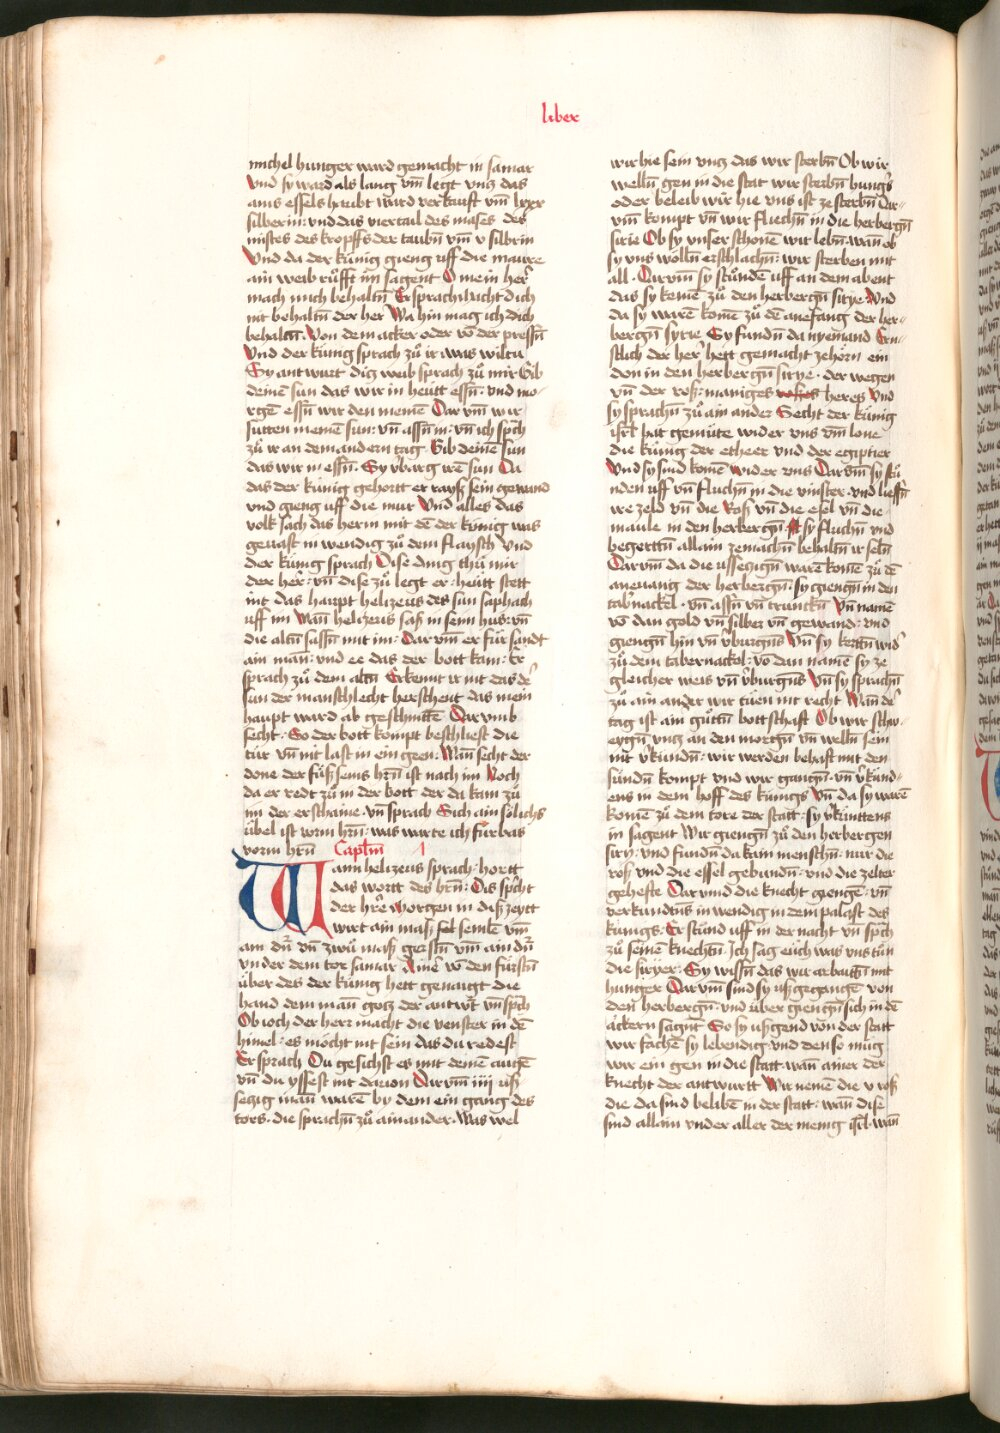 liber
michel hunger ward gemacht in samar
Vnd sy ward als lang vm̄ legt vncz das
ains essels haubt ward verkauft vm̄ lxxx
silberin: vnd das viertail des mases des
mistes des kropffs der taubn̄ vm̄ v silbrin
Vnd da der kúnig gieng uff die maure
ain weib růfft im sagent O mein her̄
mach mich behaltn̄ Er sprach nicht dich
nit behaltn̄ der her Wa hin mag ich dich
behaltn̄. Von dem acker oder vō der pressn̄
Vnd der kúnig sprach zů ir was wiltu
Sy antwurt dis weib sprach zů mir Gib
deinē sun das wir in heútt essn̄. vnd mo
rgē essn̄ wir den meinē Dar vm̄ wir
sutten meinē sun: vn̄ assn̄ in: vn̄ ich sp̄ch
zů ir an dem andern tag Gib deinē sun
das wir in essn̄. Sy v̄barg irē sun Da
das der kúnig gehortt er rayss sein gewand
vnd gieng uff die mur Vnd alles das
volk sach das herin mit dē der kúnig was
geuast in wendig zů dem flaysch Vnd
der kúnig sprach Dise ding thú mir
der her: vn̄ dise zů legt er: heútt stett
int das haupt helizeus des sun saphach
uff im Wan̄ helizeus sass in seim hus: vn̄
die altn̄ sassn̄ mit im: Dar vm̄ er fúr sandt
ain man̄: vnd ee das der bott kam: Er
sprach zů dem altn̄ Erkennt ir nit das dē
sun der manschlecht her schent das mein
haupt ward ab geschnittē Dar vmb
secht: So der bott kompt beschliest die
túr vn̄ nit last in ein geen: Wan̄ secht der
done der fúss seins hrn̄ ist nach im Noch
da er redt zů in der bott der da kam zů
im der erschaine: vn̄ sprach Sich ain sölichs
úbel ist vorm hrn̄: was warte ich fúrbas
vorm hrn̄ Caplm̄ 1
Wann helizeus sprach: hortt
das wortt des hrn̄: Dis sp̄cht
der hrē Morgen in diss zeytt
wirt ain mass sel semlē vm̄
ain dn̄r vn̄ zwů mass gerstn̄ vm̄ ain dn̄r
vnder dem tor samar Ainer̄ vō den fúrstn̄
úber des der kúnig hett genaigt die
hand dem man̄ gotz der antw̄t vn̄ sp̄ch
Ob ioch der herr macht die venster in dē
himel: es möcht nit sein das du redest
Er sprach Du gesichst es mit deinē augē
vn̄ du yssest nit dauon Darvm̄ iiij uss
seczig man̄ warē by dem ein gang des
tors. die sprachn̄ zů ainander. Was wel
wir hie sein vncz das wir sterbn̄ Ob wir
welln̄ gen in die stat wir sterbn̄ hung's
oder beleib wir hie vns ist ze sterbn̄ Dar-
vm̄ kompt vn̄ wir fliechn̄ in die herbergn̄
sirie Ob sy vnser schonē wir lebn̄. wan̄ ob
sy vns wölln̄ erschlachn̄: wir sterben mit
all. Darvm̄ sy stůndē uff an dem abent
das sy kemē zů den herbergn̄ sirye. Vnd
da sy warē komē zů dē anefang der her-
bergn̄ syrie Sy fundn̄ da nyemand Ern-
stlich der her̄ hett gemacht ze hörn ein
don in den herbergn̄ sirye. der wegen
vn̄ der ross: maniges heres Vnd
sy sprachn̄ zů ain ander Secht der kúnig
isrl̄ hat gemúte wider vns vm̄ lone
die kúnig der etheer vnd der egiptier
Vnd sy sind komē wider vns Darvm̄ sy stů
nden uff vn̄ fluchn̄ in die vinster. vnd liessn̄
ire zeld vn̄ die Ross vn̄ die esel vn̄ die
maule in den herbergn̄. sy fluchn̄ vnd
begerttn̄ allain ze machn̄ behaltn̄ ir seln̄
Darvm̄ da die ussezign̄ warē komē zů dē
aneuang der herbergn̄: sy giengn̄ in den
tab'nackel. vn̄ assn̄ vn̄ trunckn̄ Vn̄ namē
vō dan gold vn̄ silber vn̄ gewand: vnd
giengn̄ hin vn̄ v̄burgens Vn̄ sy kertn̄ wid'
zů dem tabernackel: vō dan namē sy ze
gleicher weis vn̄ v̄burgens Vn̄ sy sprachn̄
zů ain ander wir túen nit recht Wan̄ dē
tag ist ain gúttn̄ bottschaft Ob wir schw-
eygn̄ vncz an den morgn̄ vn̄ welln̄ sein
nit v̄kúndn̄: wir werden behaft mit den
súndn̄ kompt vnd wir gangn̄. vn̄ v̄kúnd-
ens in dem hoff des kúnigs Vn̄ da sy warē
komē zů dem tore der statt: sy v̄kúnttens
in sagent Wir giengn̄ zů den herbergen
siry: vnd fundn̄ da kain menschn̄: nur die
ross vnd die essel gebundn̄. vnd die zelter
gehefte Darvmb die knecht giengē: vn̄
verkundtns in wendig in dem palast des
kúnigs. Er stúnd uff in der nacht vn̄ sp̄ch
zů seinē knechtn̄. Ich sag eúch was vns tún
die siryer. Sy wissn̄ das wir arbaittn̄ mit
hunger Darvm̄ sind sy uss gegangē von
den herbergn̄. vnd úber giengn̄ sich in dē
áckern sagent So sy ussgend von der statt
wir fachē sy lebendig vnd denso múg
wir ein gen in die statt wan̄ ainer der
knecht der antwurtt Wir nemē die v ross
die da sind belibē in der statt: wan̄ dise
sind allain vnder aller der menig isrl̄. wan̄